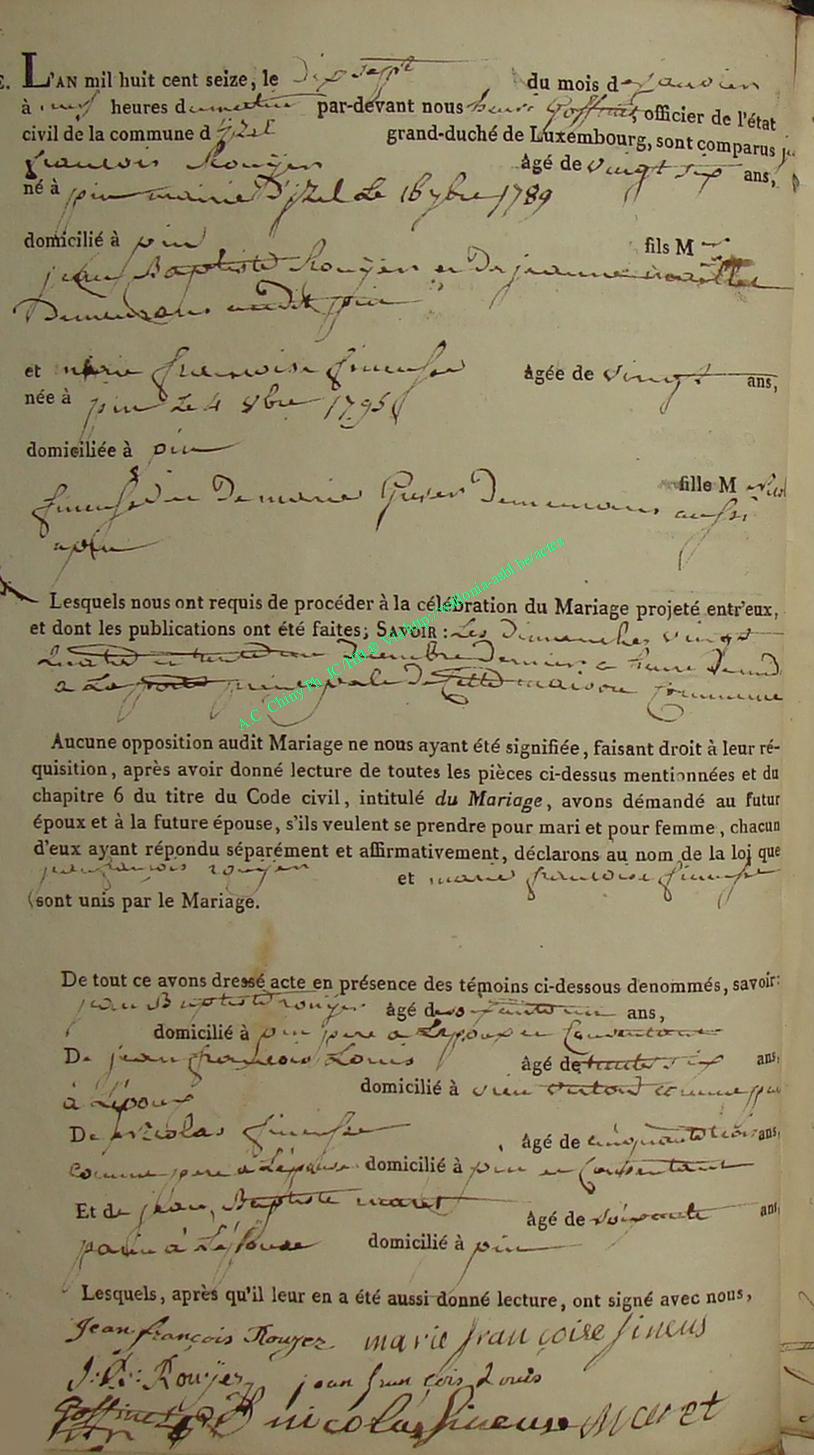 L'AN mil huit cent seize, le Dix sept du mois de janvier
à neuf heures du matin par-devant nous henri Goffinet officier de l'état
civil de la commune d'jzel grand-duché de Luxembourg, sont comparus
françois Rouyer âgé de vingt six ans,
né à pin mairie d'jzel le 16 7bre 1789
domicilié à pin fils M
jean Baptiste Rouyer et De jeanne
Demeurans audit pin
et marie françoise âgée de vingt ans,
née à pin Le 4 8bre 1795
domiciliée à pin
fille M
et De marie Demeurans aussi
a pin
Lesquels nous ont requis de procéder à la célébration du Mariage projeté entr'eux,
et dont les publications ont été faites; SAVOIR : Les Dimanches vingt
Decembre Dernier a
a La porte principale De Cette maison Commune
A.C. Chiny
Aucune opposition audit Mariage ne nous ayant été signifiée, faisant droit à leur ré-
quisition, après avoir donné lecture de toutes les pièces ci-dessus mentionnées et du
chapitre 6 du titre du Code civil, intitulé du Mariage, avons démandé au futur
époux et à la future épouse, s'ils veulent se prendre pour mari et pour femme, chacun
d'eux ayant répondu séparément et affirmativement, déclarons au nom de la loi que
jean françois rouyer et marie françoise
sont unis par le Mariage.
De tout ce avons dressé acte en présence des témoins ci-dessous dénommés, savoir:
jean Baptiste rouyer âgé de ans,
domicilié à pin pere a Lepoux et Consentant
De jean françois Louis âgé de trente six ans,
domicilié à
à Lépoux
De Nicolas âgé de cinquante trois ans,
comme pere a Lépouse domicilié à pin et Consentant
Et de jean Baptiste maret âgé de soixante ans,
à Lépouse domicilié à pin
Lesquels, après qu'il leur en a été aussi donné lecture, ont signé avec nous,
Jean françois Rouyer marie françoise fineus
J: B: Rouyer jean françois Louis
Goffinet nicolas fineuse Maret